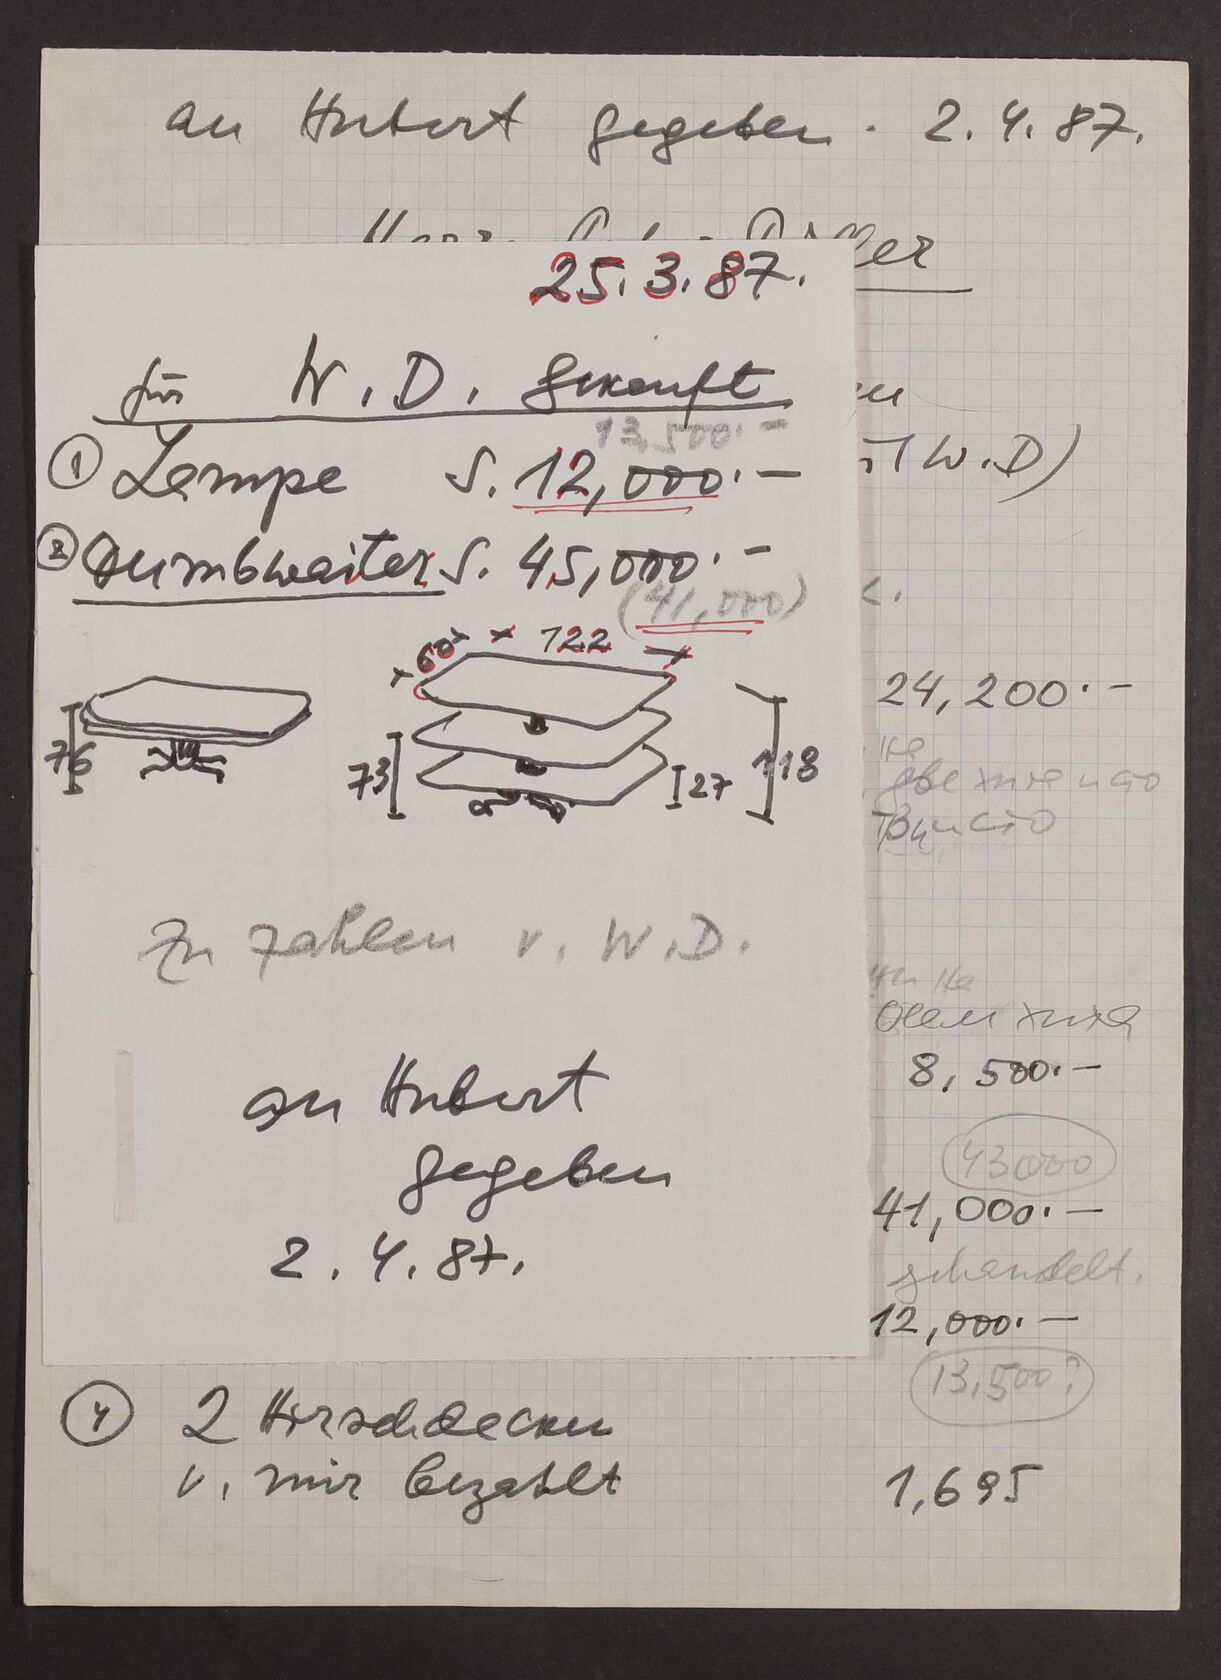 an Hubert gegeben. 2.4.87.
25.3.87.
für W.D. gekauft
13,500.-
① Lampe S. 12,000.-
② Dumbwaiter S. 45,000.-
(41,000)
60 × 122
76
73
27
118
zu zahlen v. W.D.
an Hubert
gegeben
2.4.87.
W.D)
24,200.-
8,500.-
43000
41,000.-
gehandelt.
12,000.-
13,500?
④ 2 Hirschdecken
v. mir bezahlt 1,695